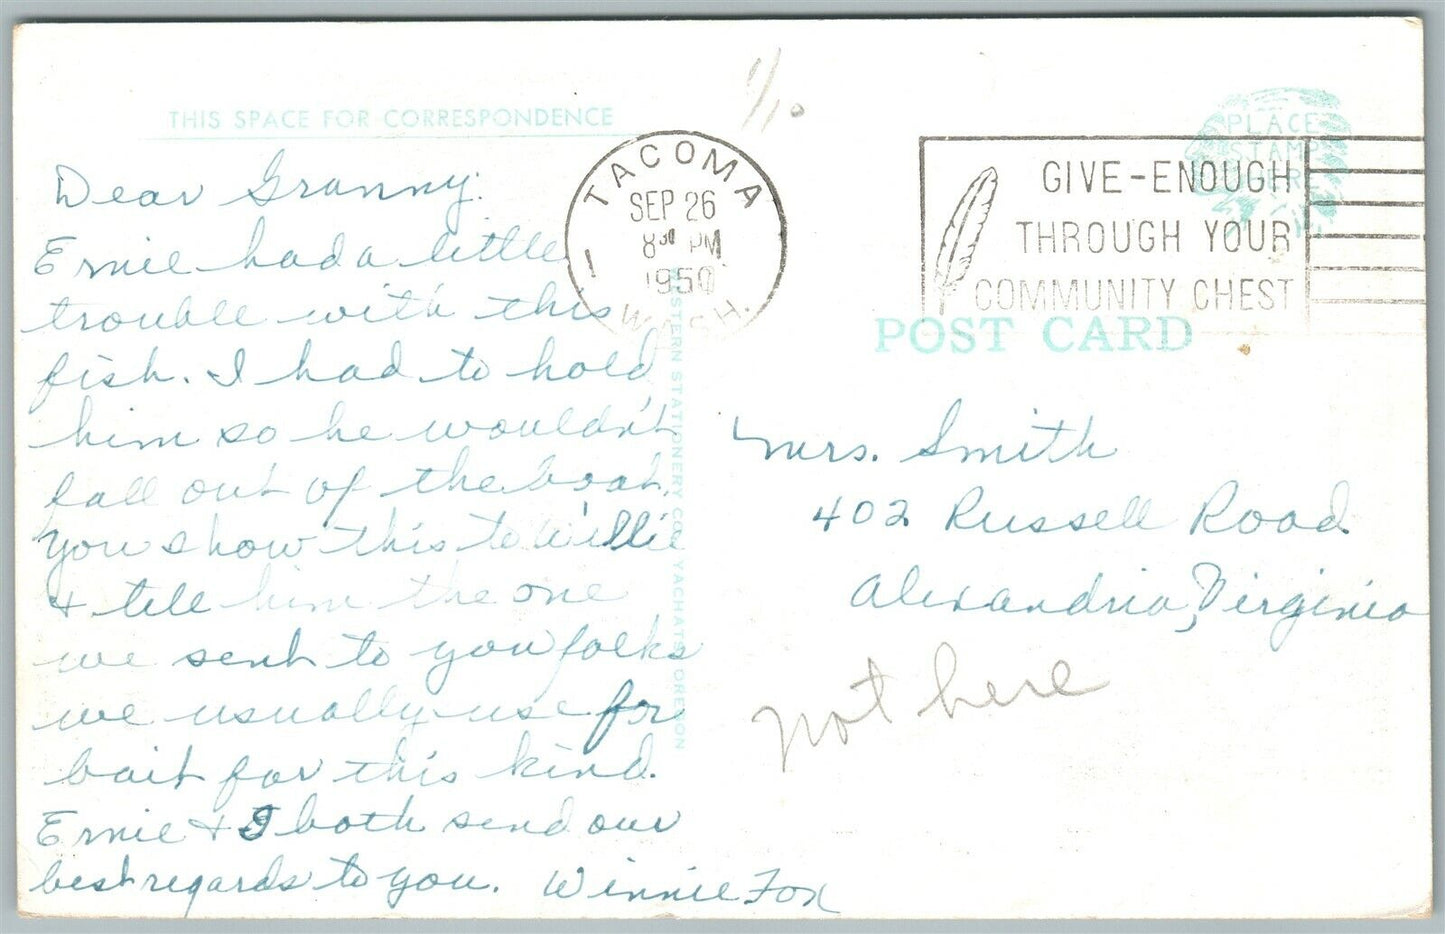 THIS SPACE FOR CORRESPONDENCE
Dear Granny:
Ernie had a little
trouble with this
fish. I had to hold
him so he wouldn't
fall out of the boat.
You show this to Willie
& tell him the one
we sent to you folks
we usually use for
bait for this kind.
Ernie & I both send our
best regards to you. Winnie Fox
TACOMA
SEP 26
8 30 PM
1950
WASH.
1
GIVE-ENOUGH
THROUGH YOUR
COMMUNITY CHEST
PLACE
STAMP
HERE
POST CARD
WESTERN STATIONERY CO., YACHATS, OREGON
Mrs. Smith
402 Russell Road
Alexandria, Virginia
not here